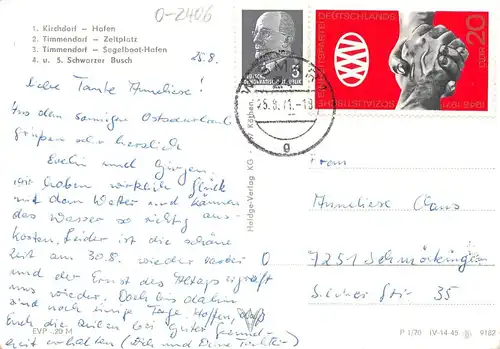 0-2406
1. Kirchdorf — Hafen
2. Timmendorf — Zeltplatz
3. Timmendorf — Segelboot-Hafen
4. u. 5. Schwarzer Busch
25.8.
Liebe Tante Anneliese!
Aus dem sonnigen Ostseeurlaub
grüßen sehr herzlich
Evelin und Jürgen.
Wir haben wirklich Glück
mit dem Wetter und können
das Wasser so richtig aus-
kosten. Leider ist die schöne
Zeit am 30.8. wieder vorbei
und der Ernst des Alltags
uns wieder. Doch bis dahin
sind noch einige Tage.
Euch die Zeilen bei guter Gesund-
heit erhalten (Dich und Deine Tochter)
EVP -.20 M
Heldge-Verlag KG · 437 Köthen
DEUTSCHE DEMOKRATISCHE REPUBLIK
5
SOZIALISTISCHE EINHEITSPARTEI DEUTSCHLANDS
XXV
1946-1971
DDR 20
25.8.71.-18
g
Firm
Anneliese Claus
7251
Str. 35
P 1/70 IV-14-45 9182